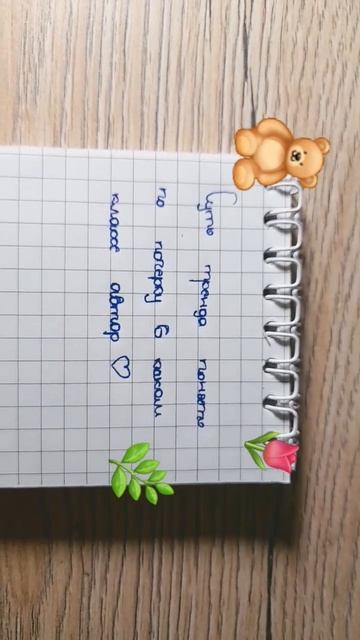 Суть тренда понять
по почерку в каком
классе автор ♡